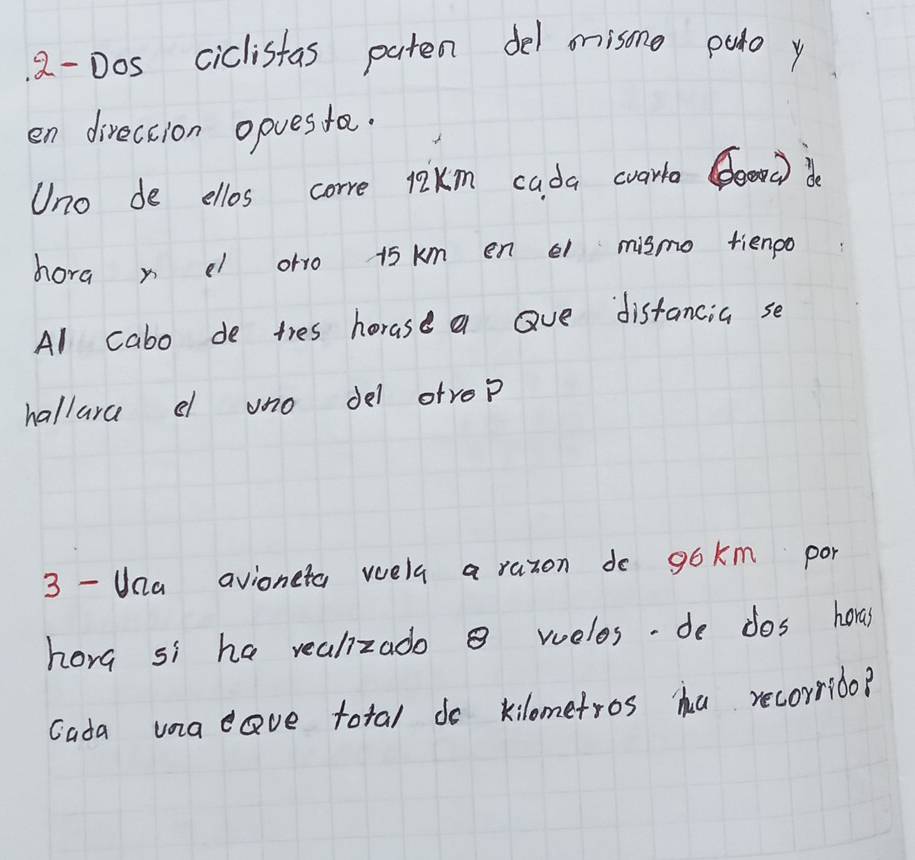 2-Dos ciclistas paten del mismo puto y
en direccion opuesta.
Uno de ellos corre 12Km cada cuarto de
hora y el otro 15 km en el mismo tienpo
Al cabo de tres horas ¿ a Que distancia se
hallara el uno del otro?
3-Una avioneta vuela a razon de 96 km por
hora si ha realizado 8 vuelos. de dos horas
Cada una ¿Que total de kilometros ha recorrido?